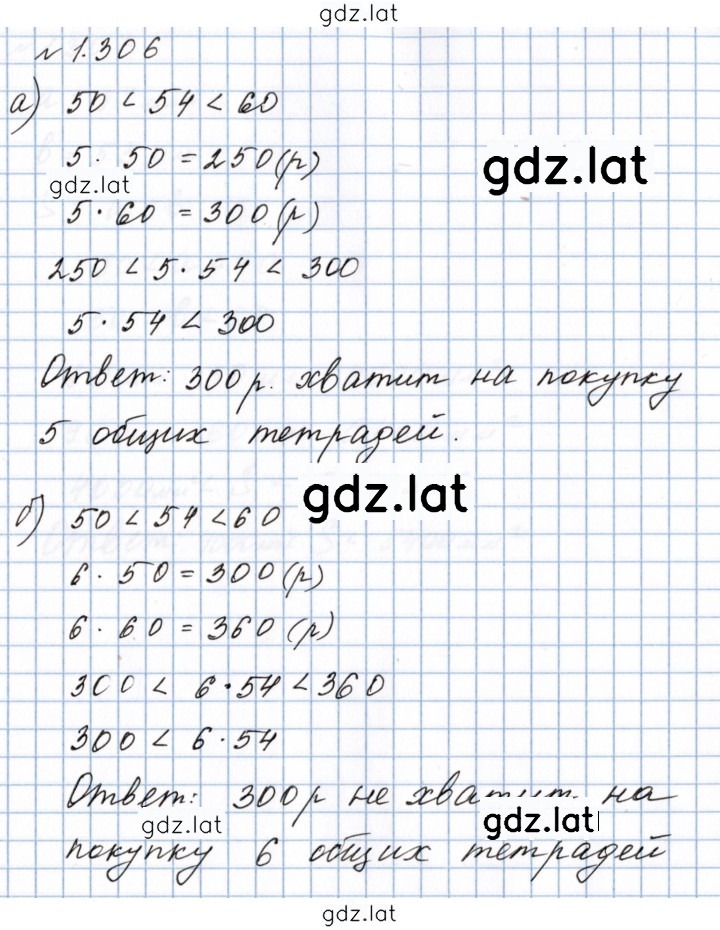 gdz.lat
№ 1.306
а) 50 < 54 < 60
5 · 50 = 250 (р)
gdz.lat
gdz.lat
5 · 60 = 300 (р)
250 < 5 · 54 < 300
5 · 54 < 300
Ответ: 300 р. хватит на покупку
5 общих тетрадей.
gdz.lat
б) 50 < 54 < 60
6 · 50 = 300 (р)
6 · 60 = 360 (р)
300 < 6 · 54 < 360
300 < 6 · 54
Ответ: 300 р не хватит на
gdz.lat
gdz.lat
покупку 6 общих тетрадей
gdz.lat